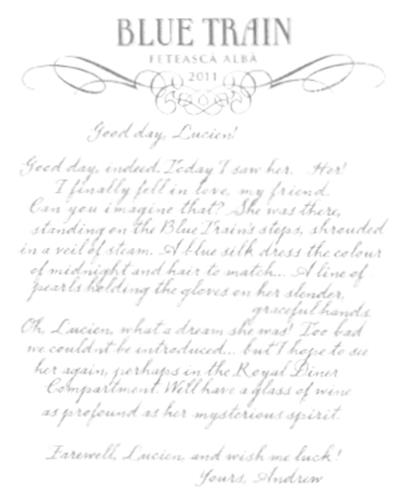 BLUE TRAIN
FETEASCĂ ALBĂ
2011
Good day, Lucien!
Good day, indeed. Today I saw her. Her!
I finally fell in love, my friend.
Can you imagine that? She was there,
standing on the Blue Train's steps, shrouded
in a veil of steam. A blue silk dress the colour
of midnight and hair to match... A line of
pearls holding the gloves on her slender,
graceful hands.
Oh, Lucien, what a dream she was! Too bad
we couldnt be introduced... but I hope to see
her again, perhaps in the Royal Diner
Compartment. We'll have a glass of wine
as profound as her mysterious spirit.
Farewell, Lucien, and wish me luck!
Yours, Andrew